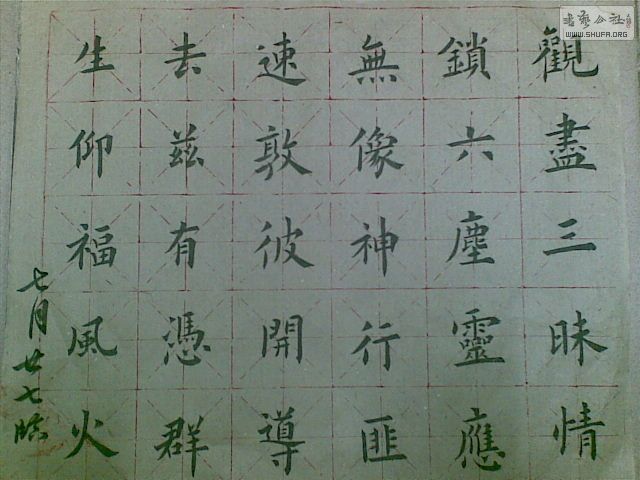 觀盡三昧情
鎖六塵靈應
無像神行匪
速敦彼開導
去茲有憑群
生仰福風火
七月廿七臨
書藝公社
WWW.SHUFA.ORG